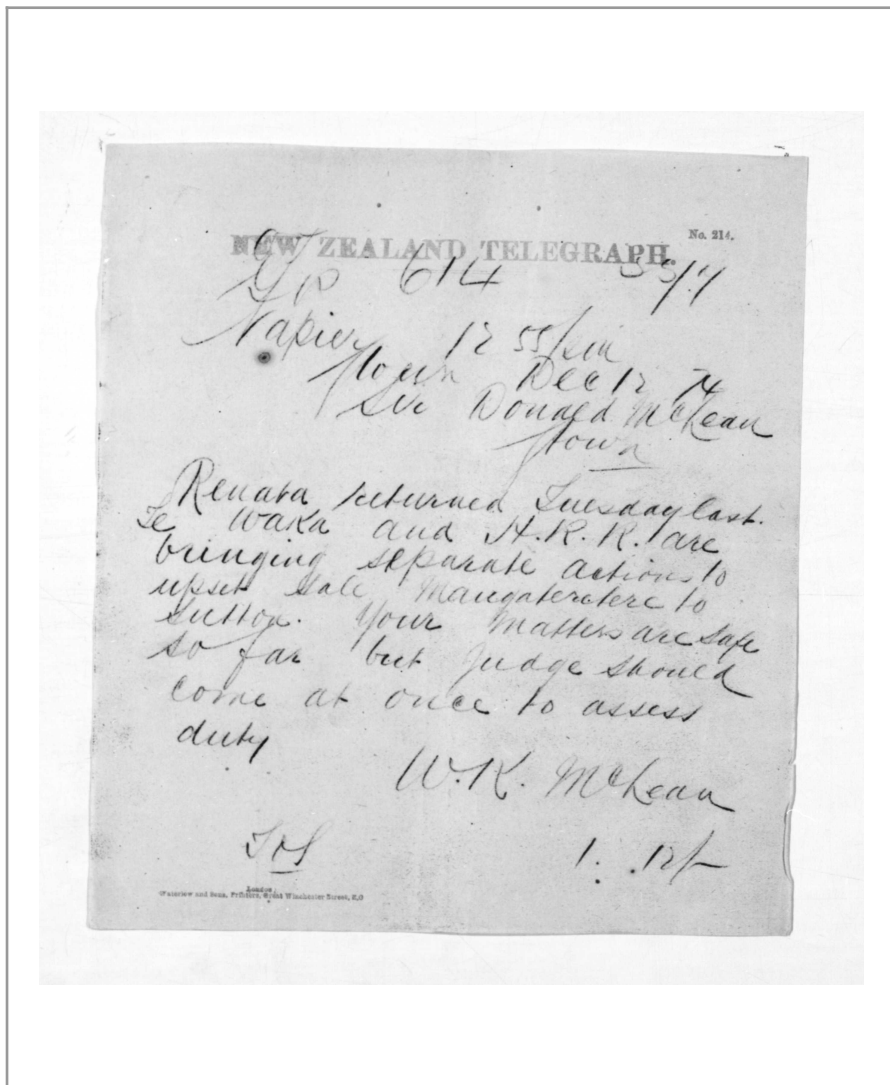 No. 214.
NEW ZEALAND TELEGRAPH.
614 33/7
Napier 12 55/pm
town Dec 12 74
Sir Donald McLean
town
Renata returned Tuesday last.
Te Waka and H.K.K. are
bringing separate actions to
upset sale Mangateretere to
Sutton. Your matters are safe
so far but judge should
come at once to assess
duty
W.K. McLean
1. 12/-
London:
Waterlow and Sons, Printers, Great Winchester Street, E.C